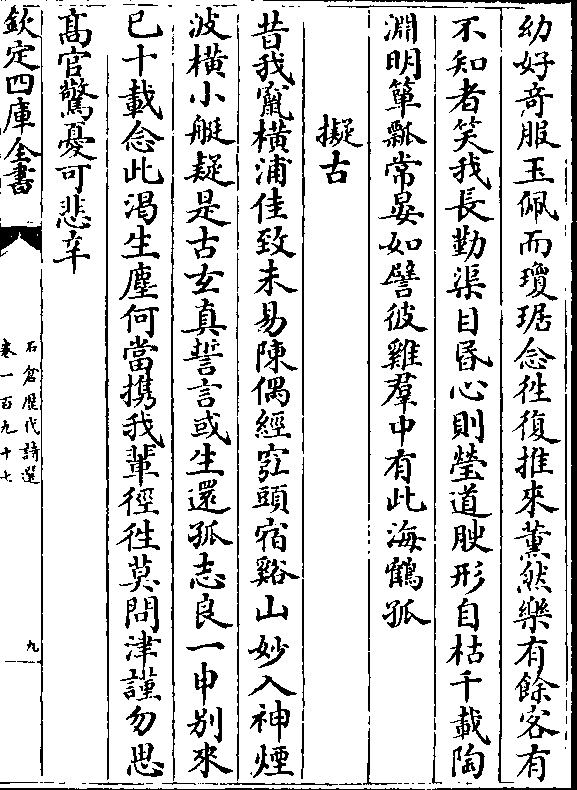 幼好竒服玉佩而瓊琚念徃復推來薰然樂有餘客有
不知者笑我長勤渠目昬心則瑩道腴形自枯千載陶
淵明簞瓢常晏如譬彼雞羣中有此海鶴孤
擬古
昔我竄橫浦佳致未易陳偶經䆫頭宿谿山妙入神煙
波橫小艇疑是古玄真誓言或生還孤志良一申别來
已十載念此渴生塵何當携我輩徑徃莫問津謹勿思
髙官驚憂可悲辛
欽定四庫全書
石倉歴代詩選
卷一百九十七
九